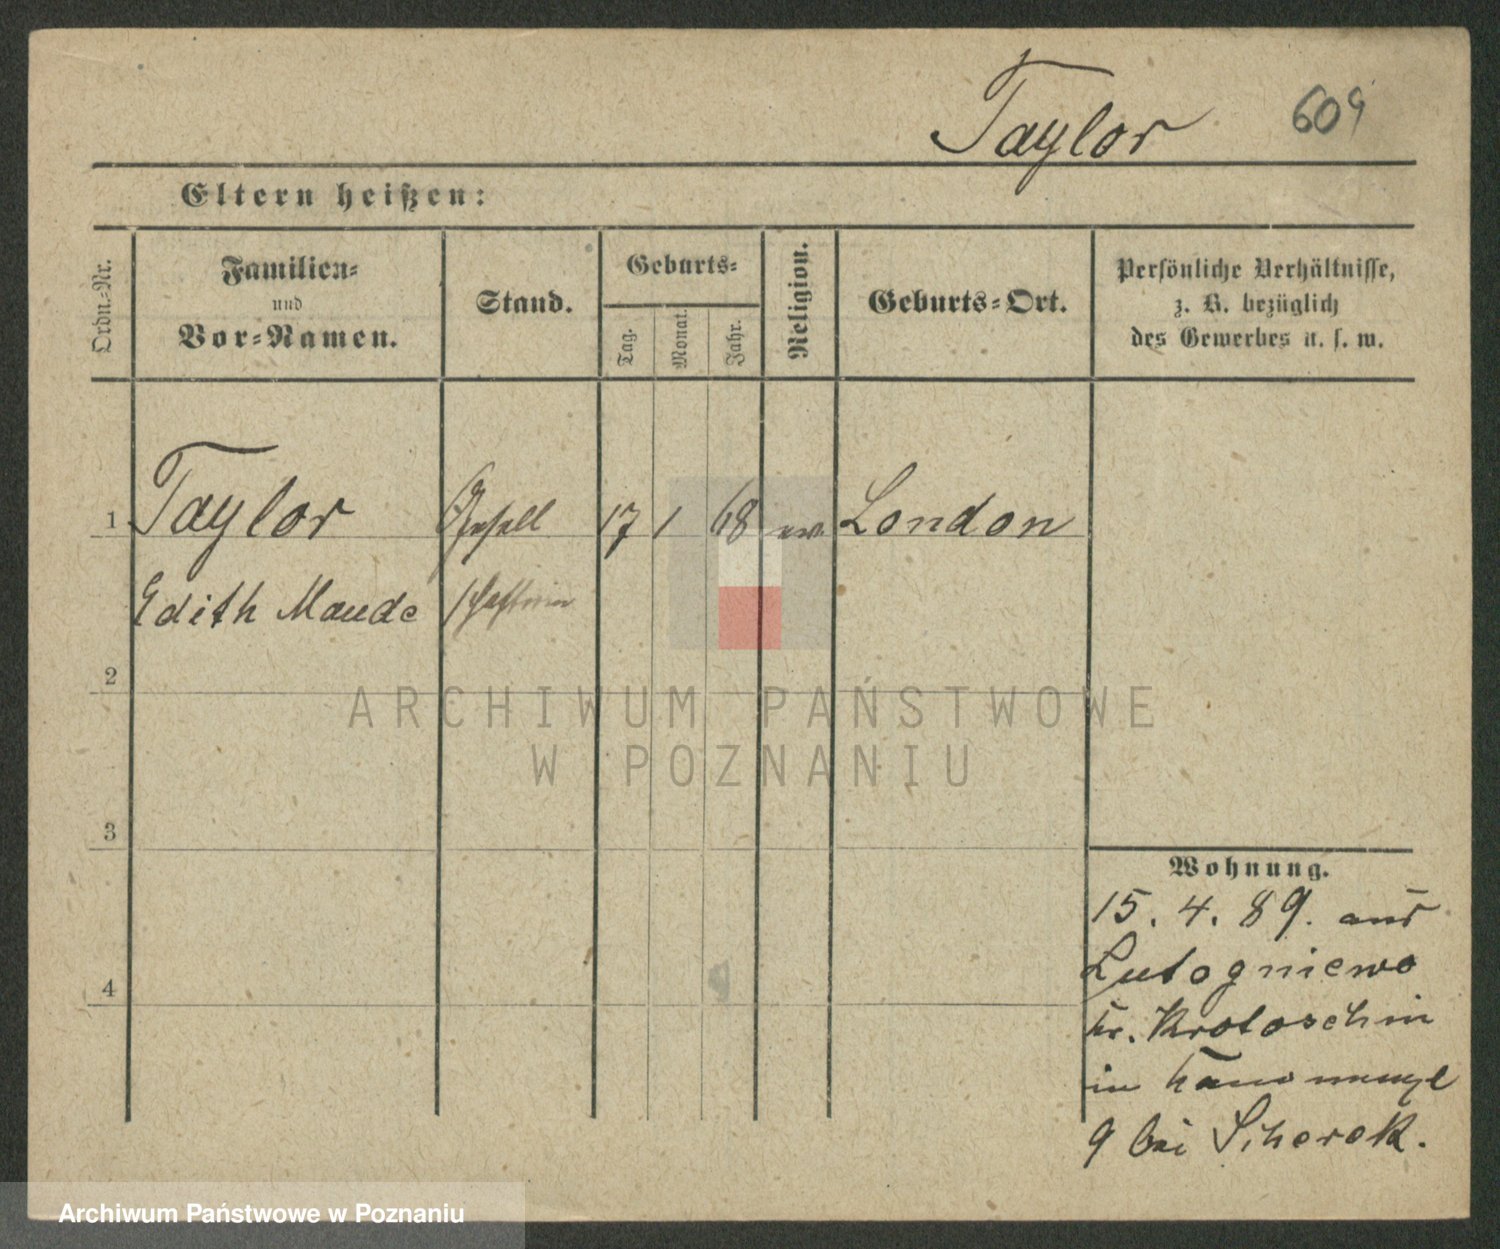 Taylor 609
Eltern heißen:
Ordn.-Nr.
Familien-
und
Vor-Namen.
Stand.
Geburts-
Tag.
Monat.
Jahr.
Religion.
Geburts-Ort.
Persönliche Verhältnisse,
z. B. bezüglich
des Gewerbes u. s. w.
1 Taylor Gesell 17 1 68 ev. London
Edith Maude schaftrin
2
ARCHIWUM PAŃSTWOWE
W POZNANIU
3
Wohnung.
15. 4. 89. aus
Lutogniewo
4
kr. Krotoschin
in
9 bei
Archiwum Państwowe w Poznaniu